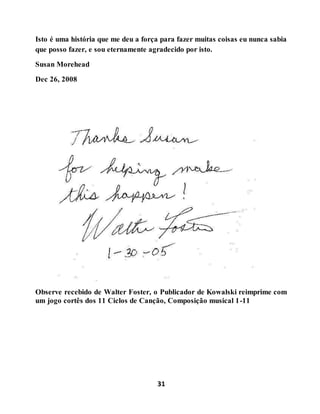 Isto é uma história que me deu a força para fazer muitas coisas eu nunca sabia
que posso fazer, e sou eternamente agradecido por isto.
Susan Morehead
Dec 26, 2008
Thanks Susan
for helping make
this happen!
Walter Foster
1-30-05
Observe recebido de Walter Foster, o Publicador de Kowalski reimprime com
um jogo cortês dos 11 Ciclos de Canção, Composição musical 1-11
31